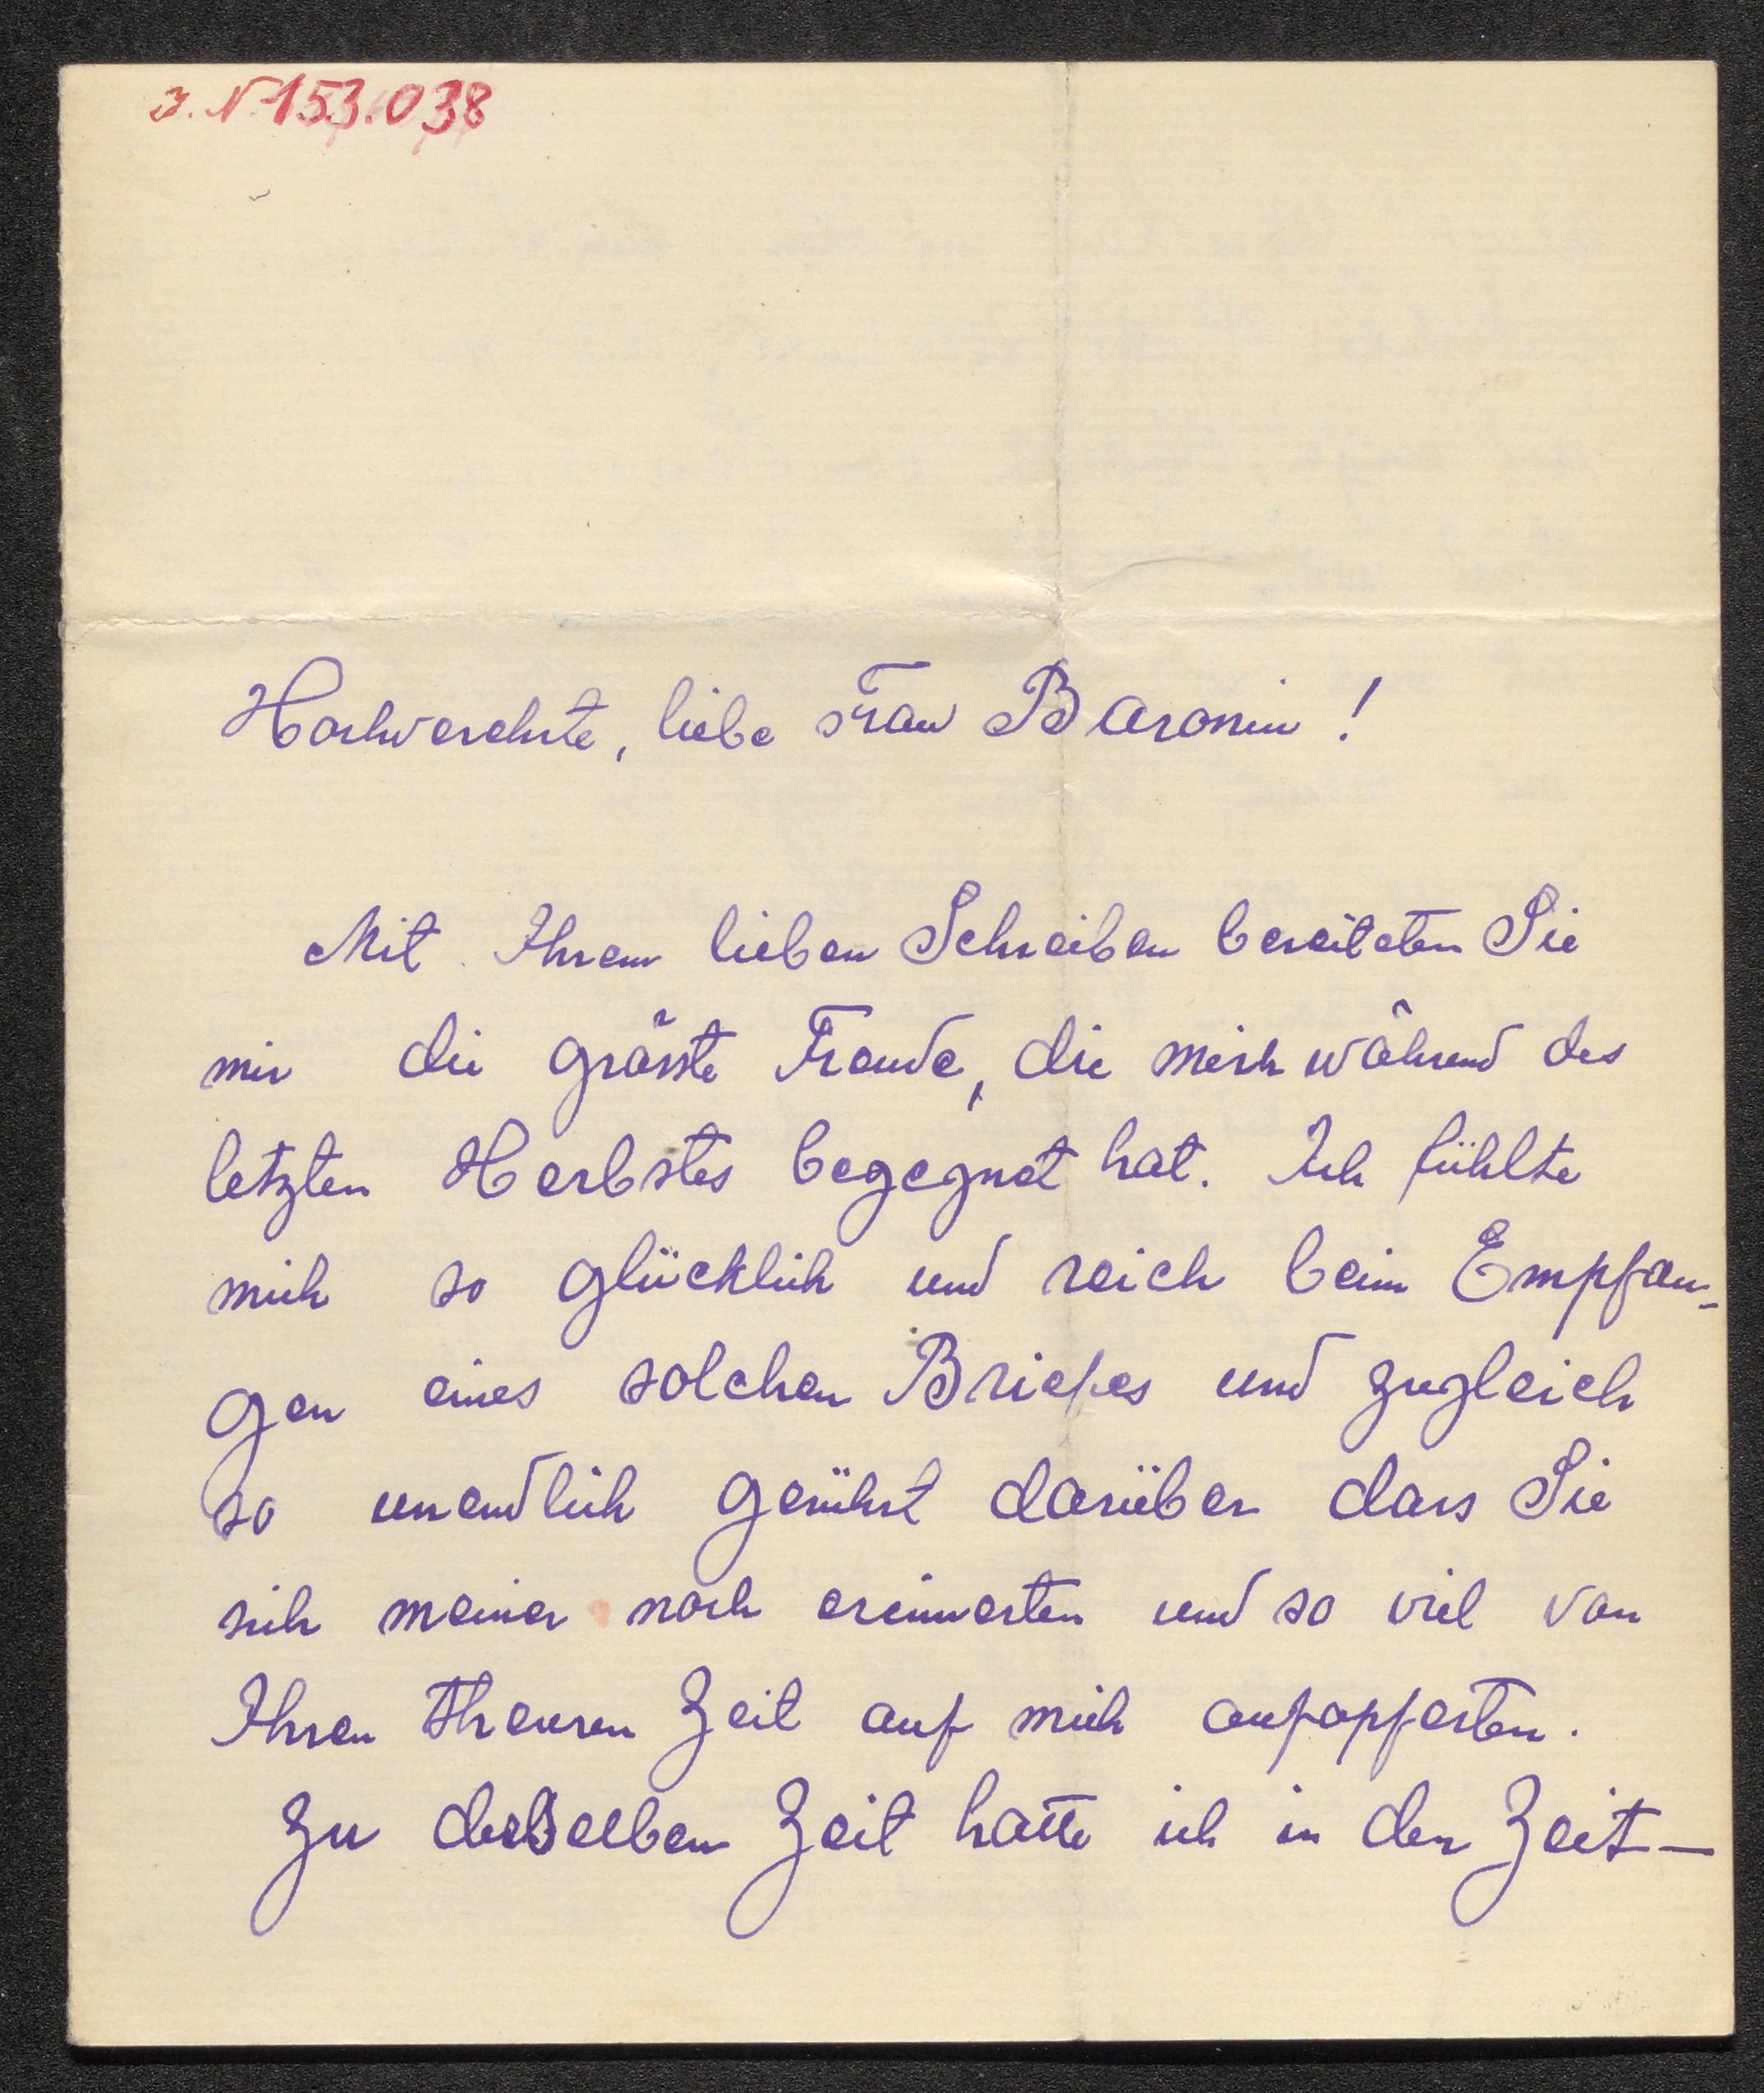 J. N 153.038
Hochverehrte, liebe Frau Baronin!
Mit Ihrem lieben Schreiben bereiteten Sie
mir die grösste Freude, die mich während des
letzten Herbstes begegnet hat. Ich fühlte
mich so glücklich und reich beim Empfan-
gen eines solchen Briefes und zugleich
so unendlich gerührt darüber dass Sie
sich meiner noch erinnerten und so viel von
Ihren theuren Zeit auf mich aufopferten.
Zu derselben Zeit hatte ich in den Zeit-